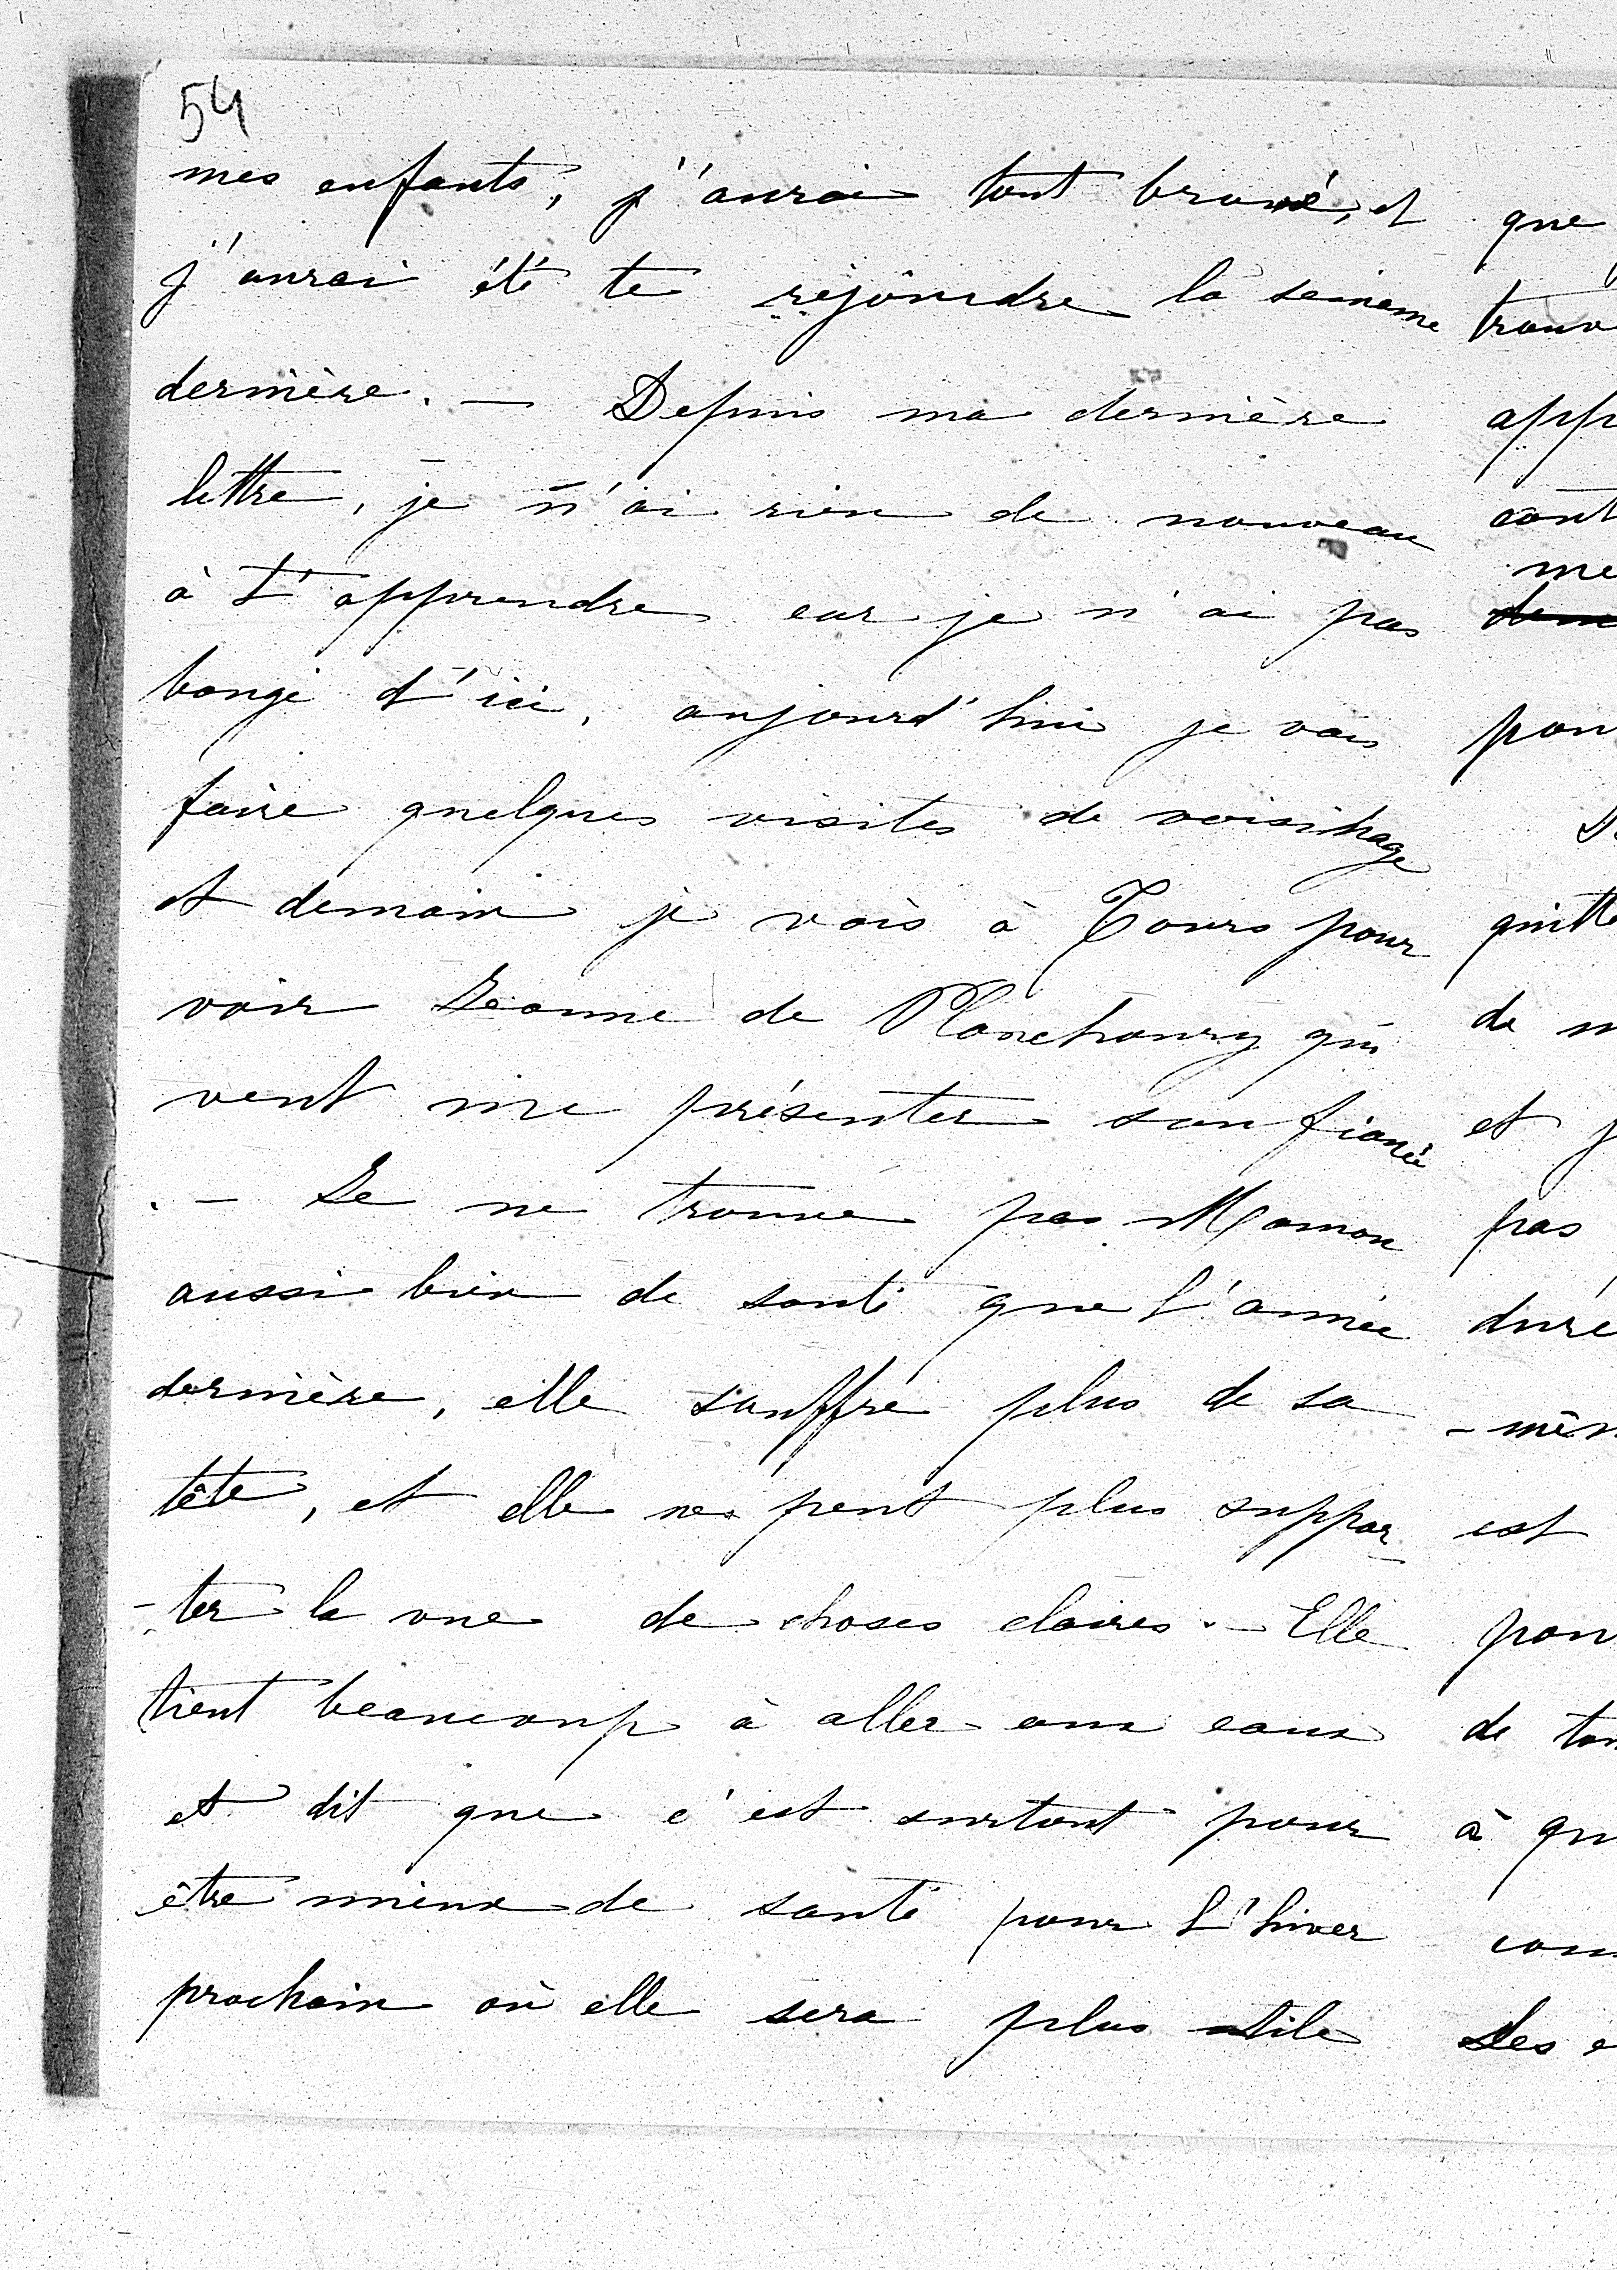 54
mes enfants, j'aurai tout bravé, et
j'aurai été te rejoindre la semaine
dernière. — Depuis ma dernière
lettre, je n'ai rien de nouveau
à t'apprendre car je n'ai pas
bougé d'ici, aujourd'hui je vais
faire quelques visites de voisinage
et demain je vais à Tours pour
voir Jeanne de Planchoury qui
veut me présenter son fiancé
. — Je ne trouve pas Maman
aussi bien de santé que l'année
dernière, elle souffre plus de sa
tête, et elle ne peut plus suppor
-ter la vue de choses claires. — Elle
tient beaucoup à aller aux eaux
et dit que c'est surtout pour
être mieux de santé pour l'hiver
prochain où elle sera plus utile
que
trouv
app
cont
me
pou
quitte
de m
et j
pas
duré
- mêm
est
pou
de tou
à qu
com
des e